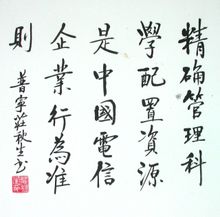 精确管理科
學配置資源
是中國電信
企業行為准
則
普寧莊秋生書